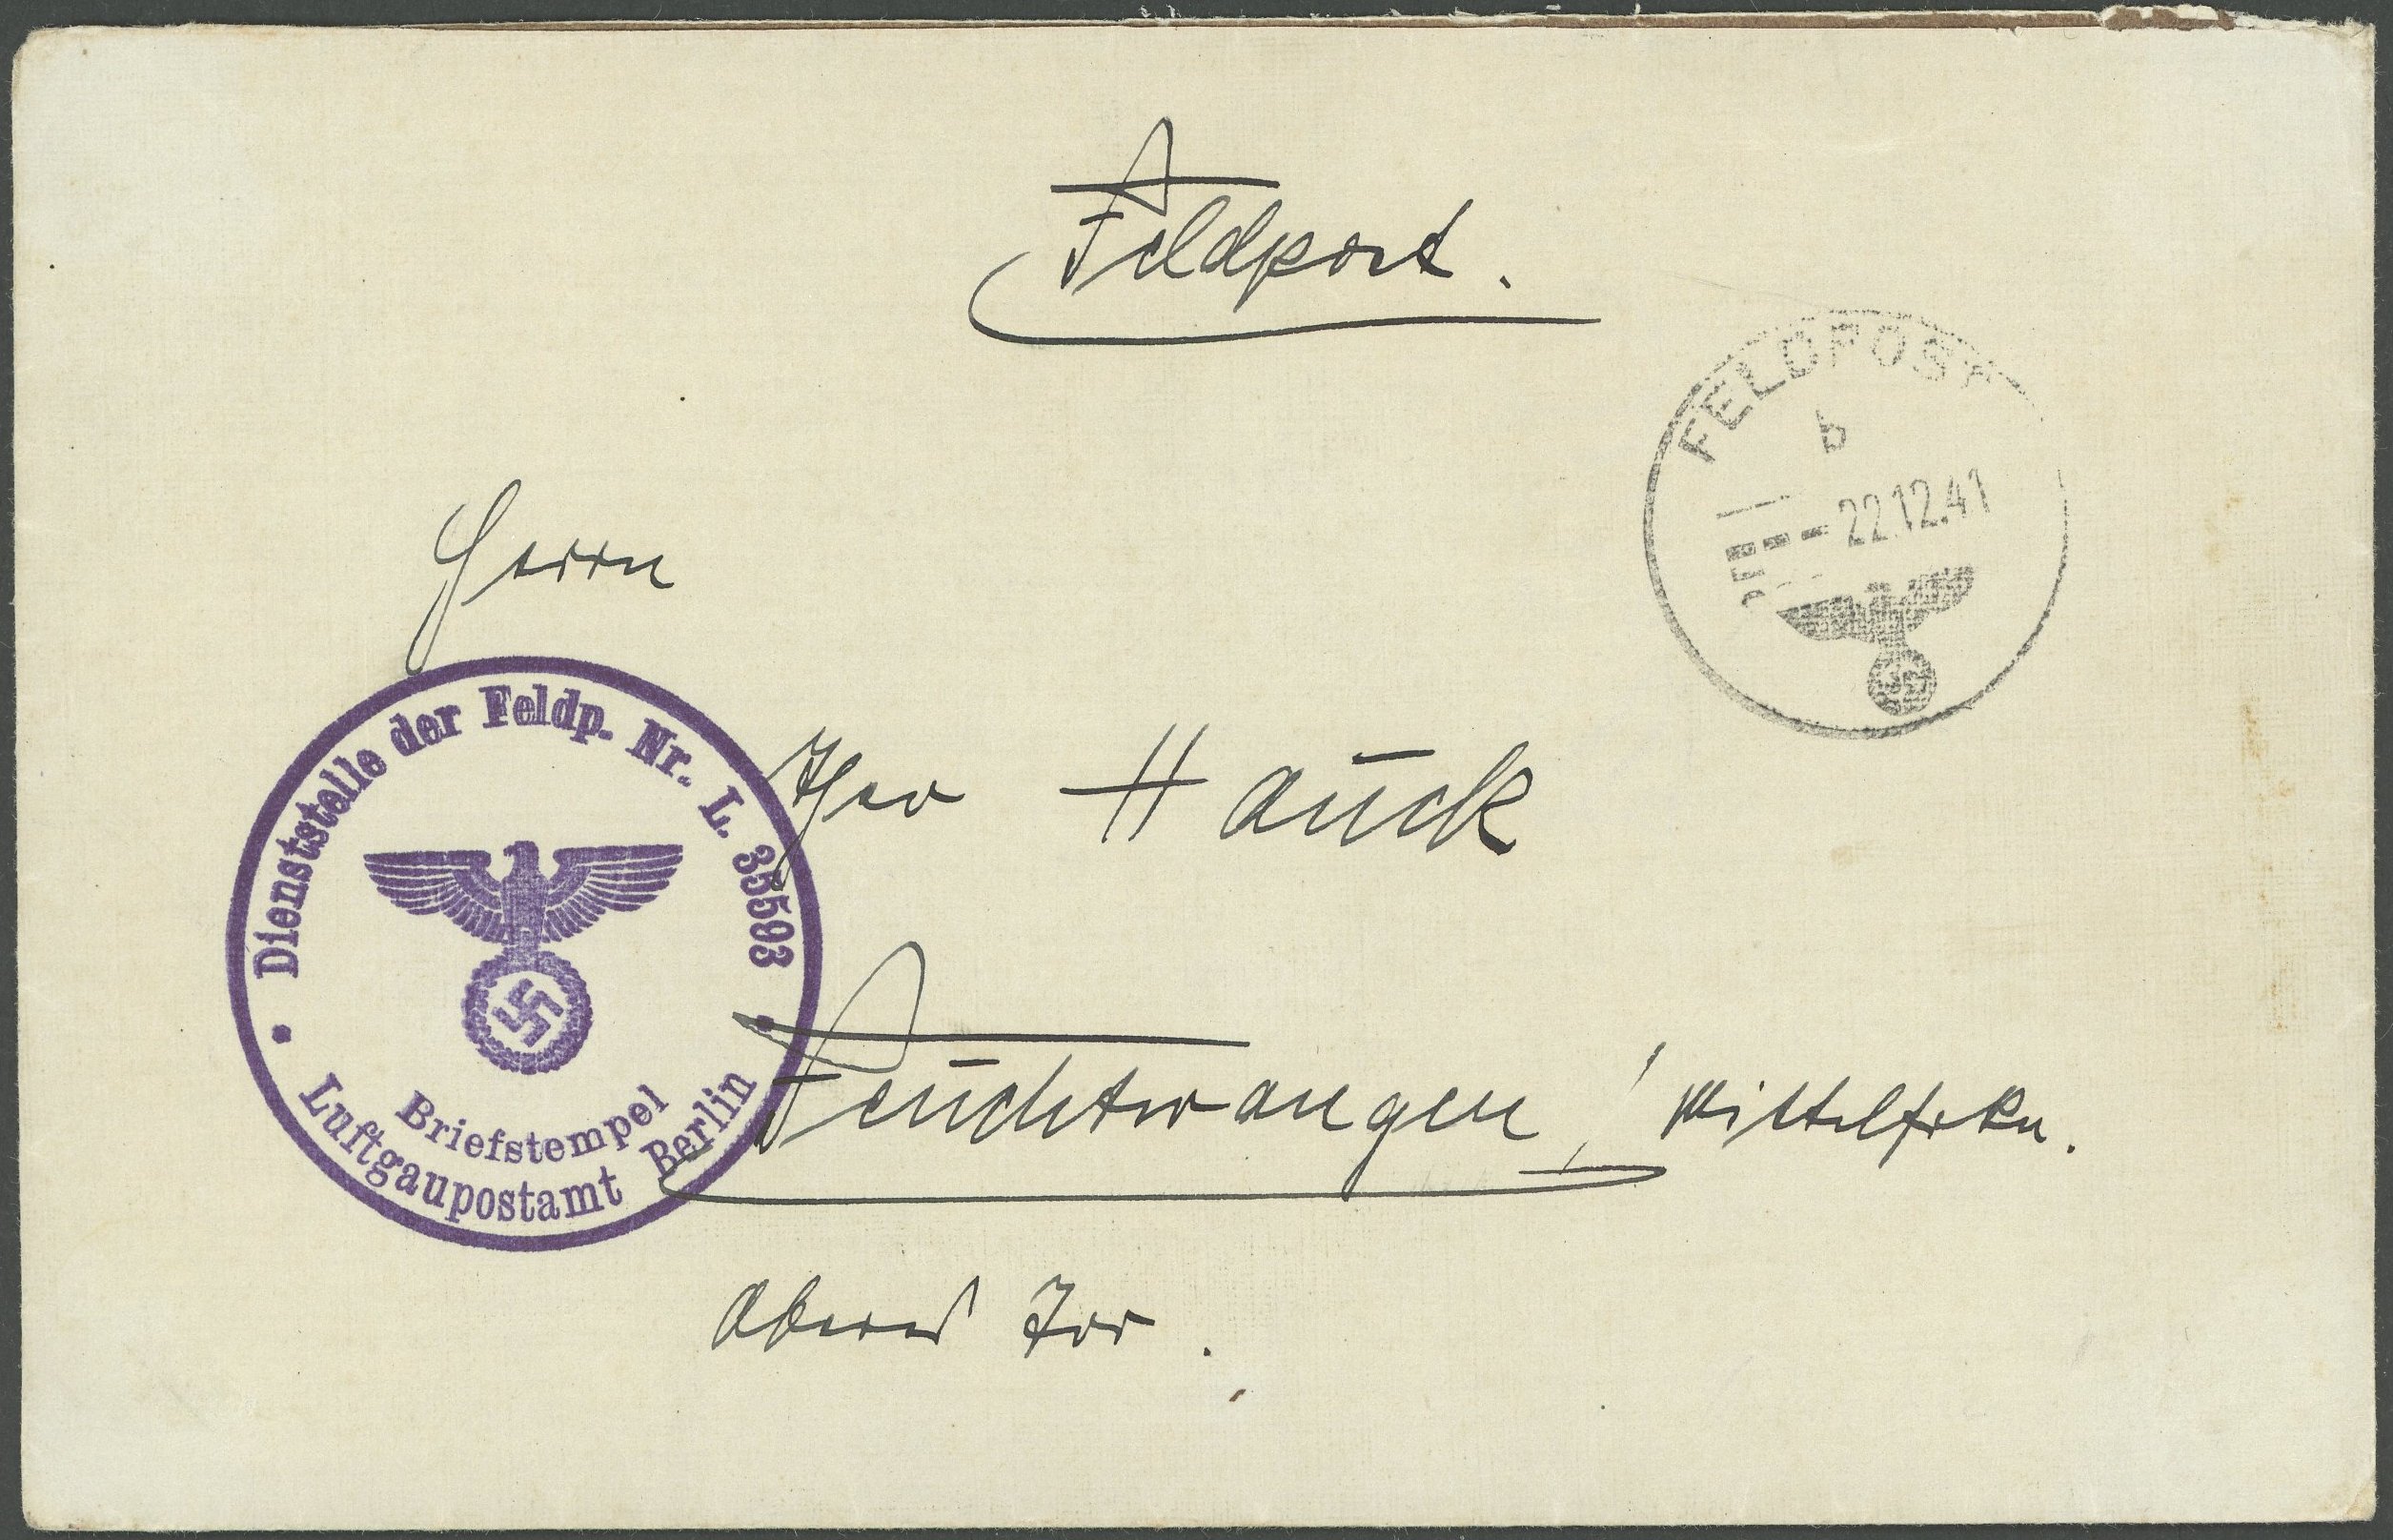 Feldpost.
FELDPOST
b
22.12.41
Herrn
Theo Hauck
Feuchtwangen / Mittelfrkn.
Oberes Tor.
Dienststelle der Feldp. Nr. L. 35593
Briefstempel
Luftgaupostamt Berlin